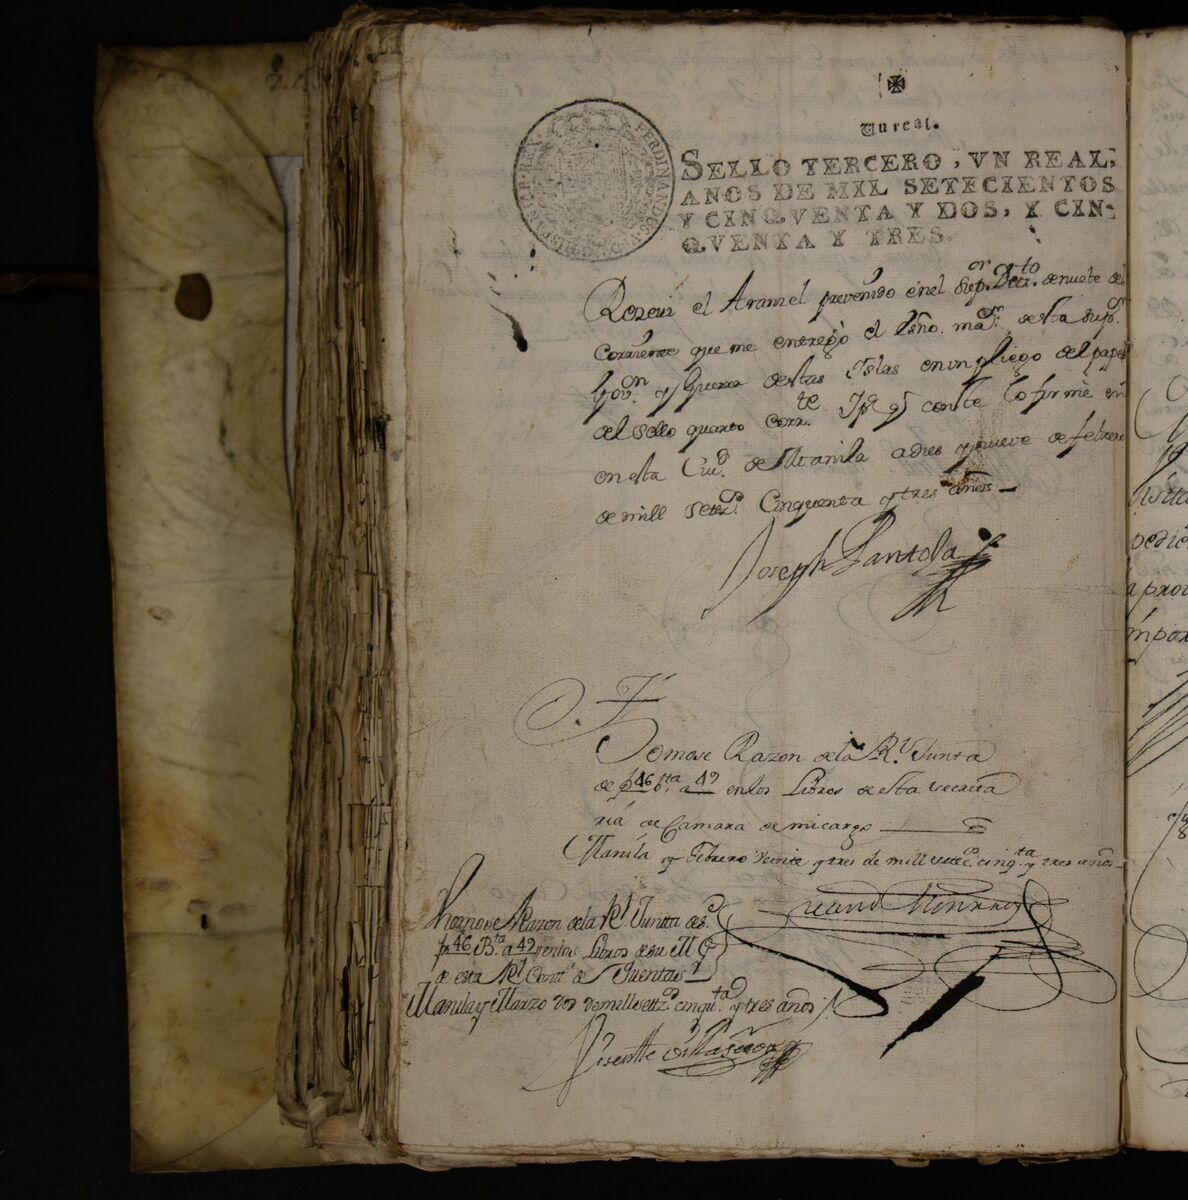 Vn real.
FERDINANDUS·VI·D·G·HISPANIAR·REX·
SELLO TERCERO, VN REAL,
AÑOS DE MIL SETECIENTOS
Y CINQVENTA Y DOS, Y CIN-
QVENTA Y TRES.
Reseui el Aransel prevenido en el Sup.or Decr.to de nueve del
Corriente que me entregò el Esno. ma.r de esta Sup.or
Gov.on y Guerra destas Yslas en un pliego del papel
del sello quarto corr.te Y pa q.e conste lo firmè en
en esta Ciu.d de Manila a dies y nueve de febrero
de mill sette.s Cinquenta y tres años—
Joseph Pantoja
Tomose Razon dela R.l Junta
de f 46 b.ta a 49 en los Libros de esta secreta
ria de Camara de mi cargo
Manila y Febrero veinte y tres de mill sette.s cinq.ta y tres años
Juan Monrroy
Thomose Razon de la R.l Juntta des.
fx 46 B.ta a 49 en los Libros de su M
de esta R.l Cont.a de Quentas
Manila y Marzo dos de mill settz.s cinqu.ta y tres años
Visentte